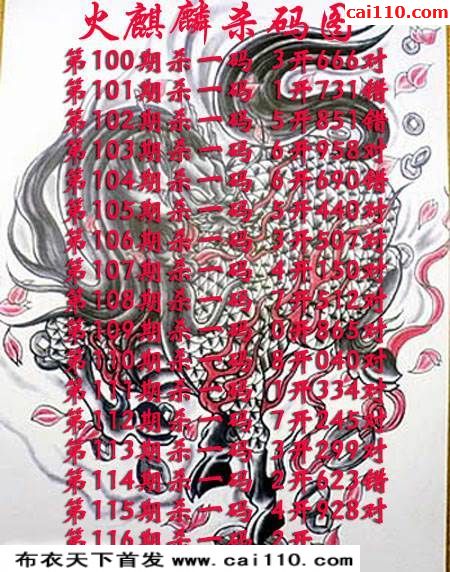 cai110.com
火麒麟杀码图
第100期杀一码 3开666对
第101期杀一码 1开731错
第102期杀一码 5开851错
第103期杀一码 6开958对
第104期杀一码 6开690错
第105期杀一码 5开440对
第106期杀一码 3开507对
第107期杀一码 4开150对
第108期杀一码 7开512对
第109期杀一码 0开865对
第110期杀一码 8开040对
第111期杀一码 开334对
第112期杀一码 7开245对
第113期杀一码 3开299对
第114期杀一码 2开623错
第115期杀一码 4开928对
第116期杀一码 2开
布衣天下首发 www.cai110.com